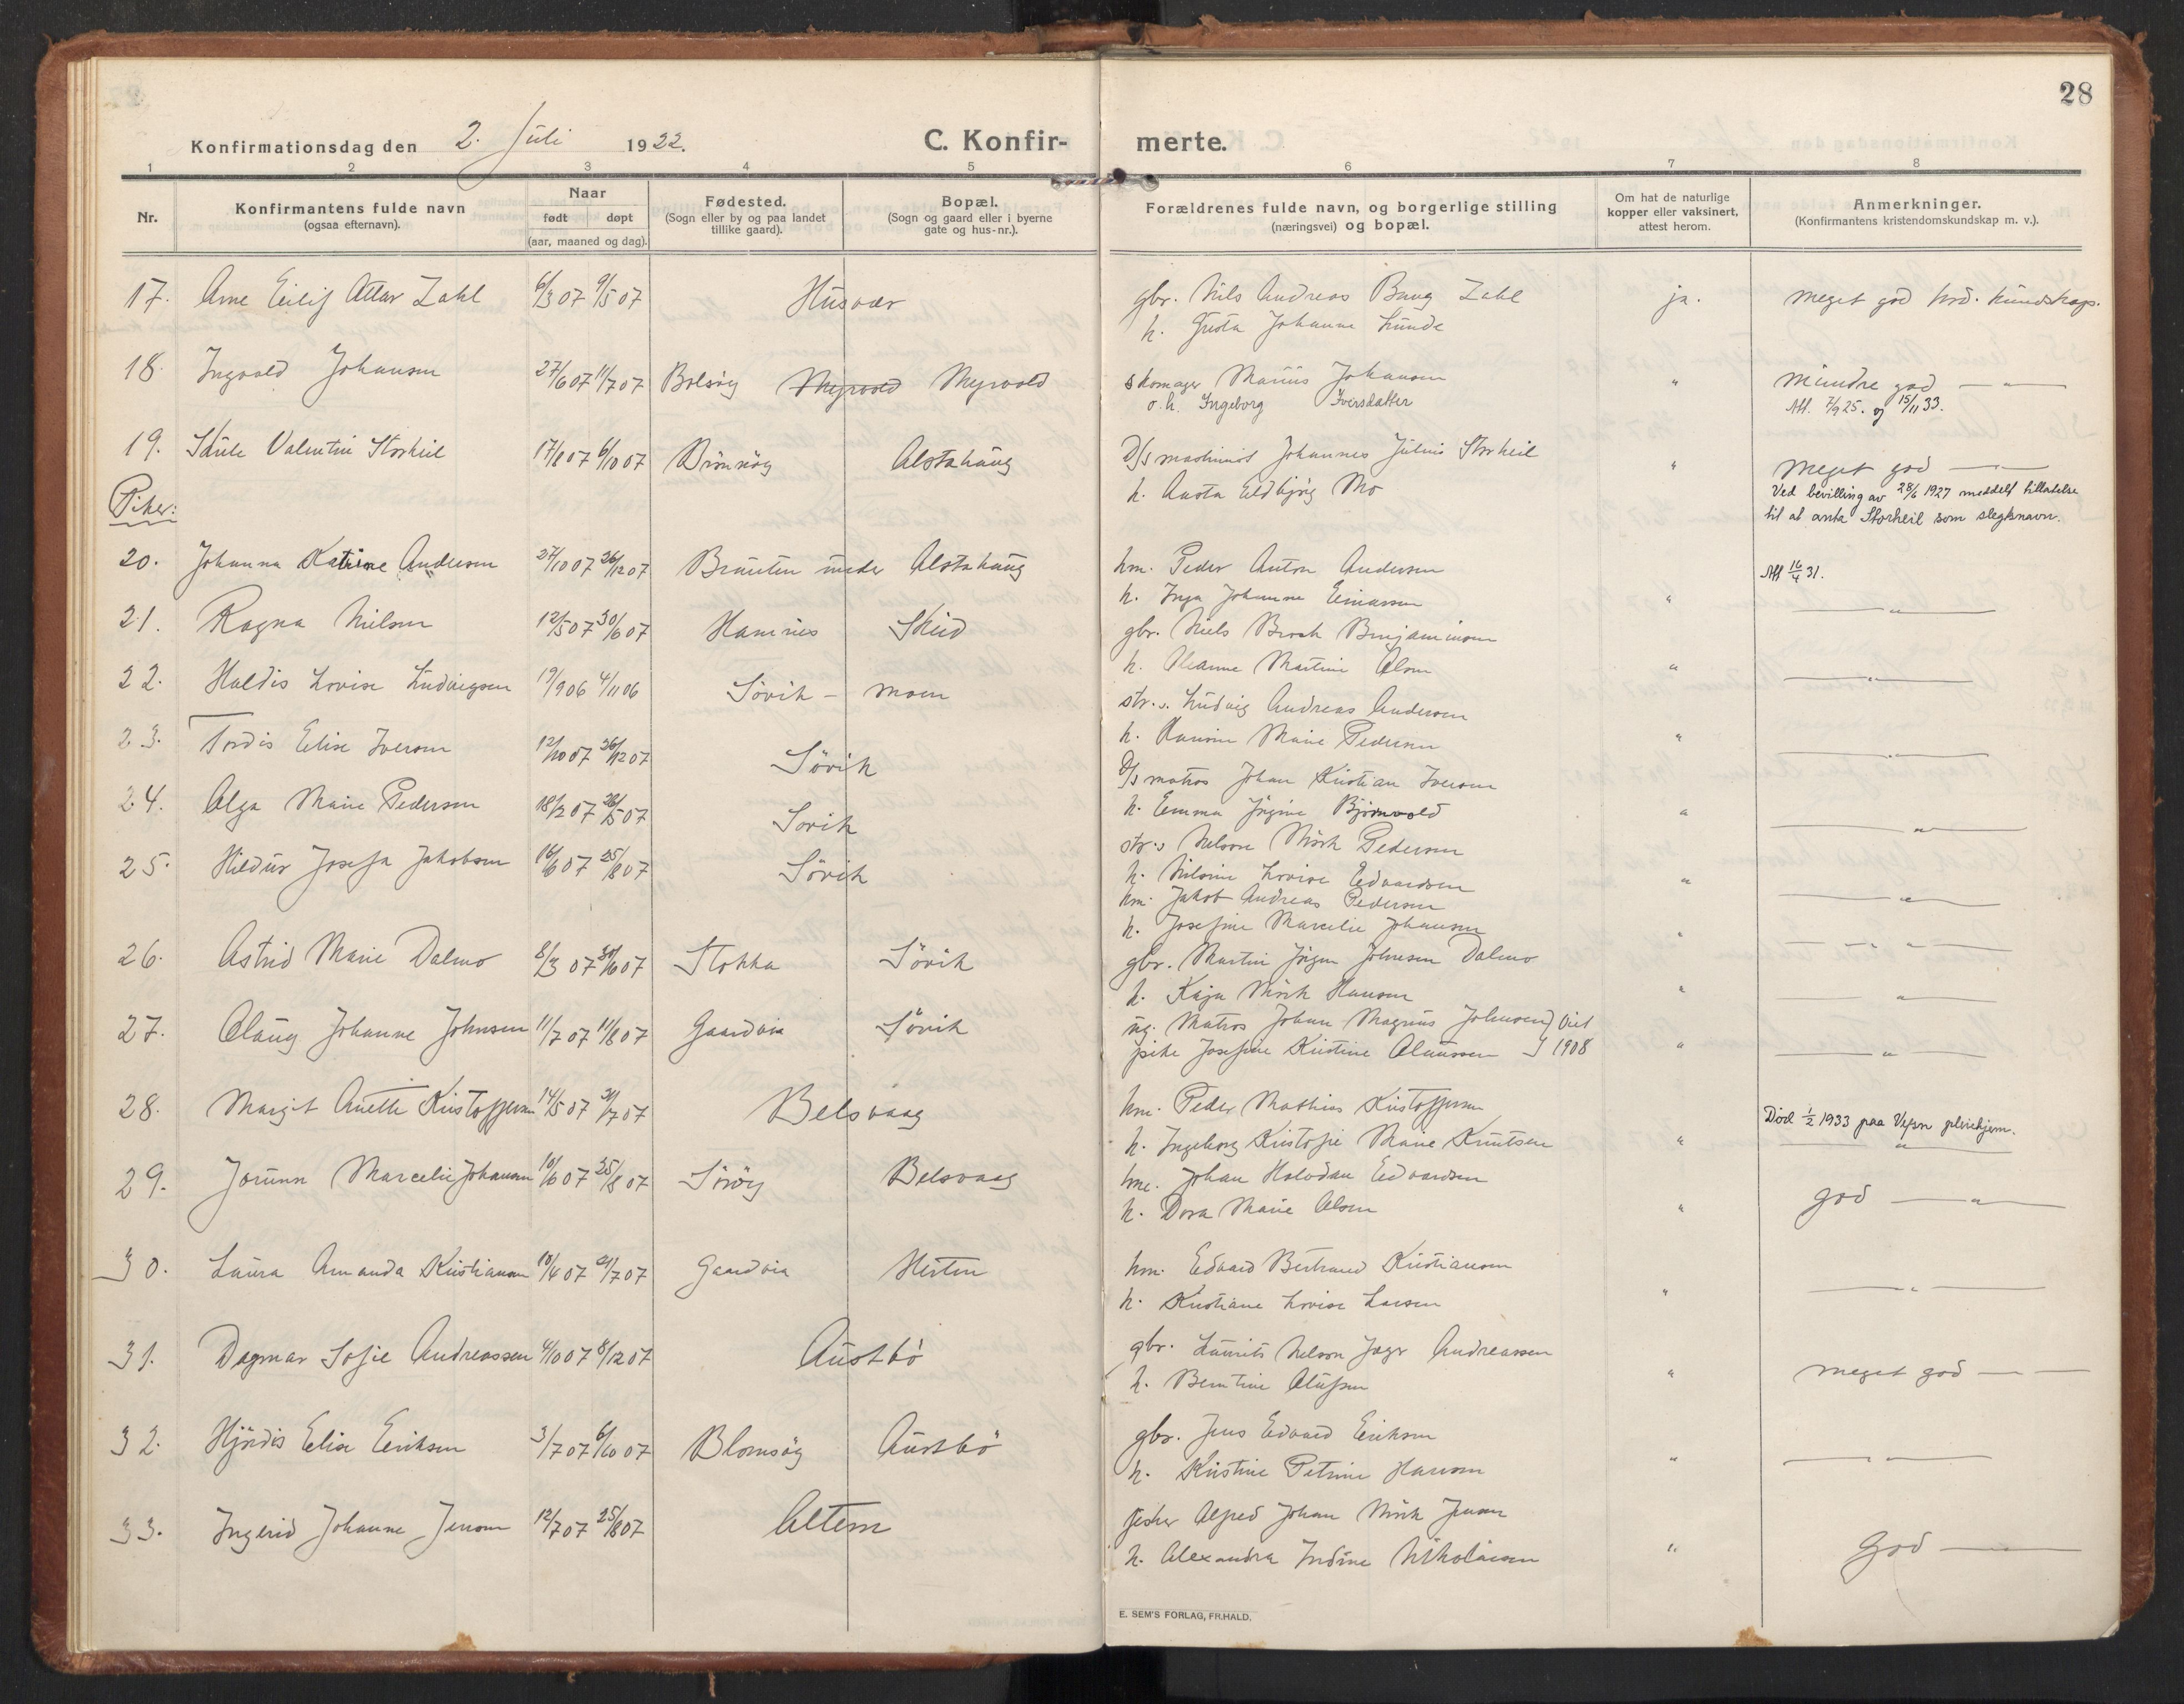 28
Konfirmationsdag den 2. Juli 1922. C. Konfir- merte.
1 2 3 4 5 6 7 8
Nr.
Konfirmantens fulde navn
(ogsaa efternavn).
Naar
født døpt
(aar, maaned og dag).
Fødested.
(Sogn eller by og paa landet
tillike gaard).
Bopæl.
(Sogn og gaard eller i byerne
gate og hus-nr.).
Forældrenes fulde navn, og borgerlige stilling
(næringsvei) og bopæl.
Om hat de naturlige
kopper eller vaksinert,
attest herom.
Anmerkninger.
(Konfirmantens kristendomskundskap m. v.).
17. Arne Eilif Attar Zahl 6/3 07 9/5 07 Husvær gbr. Nils Andreas Bang Zahl ja. meget god krd. kundskap.
h. Johanne Lunde
18. Ingvald Johansen 27/6 07 11/7 07 Bolsøy Myrvold Myrvold skomager Marius Johansen " mindre god — " —
o. h. Ingeborg Iversdatter Att. 7/9 25. og 15/11 33.
19. Skule Valentin Storheil 17/8 07 6/10 07 Brönnöy Alstahaug D/s maskinist Johannes Julius Storheil " meget god —"—
h. Austa Eldbjørg Mo
Ved bevilling av 28/6 1927 meddelt tillatelse
til at anta Storheil som slegtsnavn.
Piker:
20. Johanna Katrine Andersen 27/10 07 26/12 07 Brauten under Alstahaug hm. Peder Anton Andersen Att 16/4 31.
h. Inga Johanne Einarsen " — " —
21. Ragna Nilsen 12/5 07 30/6 07 Hamnes Skeid gbr. Niels Brosk Benjaminsen
h. Oleanne Martine Olsen " — " —
22. Haldis Lovise Ludvigsen 19/9 06 4/11 06 Sövik - moen str.s. Ludvig Andreas Andersen
h. Hansine Marie Pedersen " — " —
23. Tordis Elise Iversen 12/10 07 26/12 07 Sövik D/s matros Johan Kristian Iversen
h. Emma Jørgine Bjørnvold " — " —
24. Olga Marie Pedersen 18/2 07 26/5 07 Sövik str.s Nelson Mörk Pedersen
h. Nilsine Lovise Edvardsen " — " —
25. Hildur Josefa Jakobsen 16/6 07 25/8 07 Sövik hm. Jakob Andreas Pedersen
h. Josefine Marcelie Johansen " — " —
26. Astrid Marie Dalmo 8/3 07 30/6 07 Stokka Sövik gbr. Martin Jörgen Johnsen Dalmo
h. Kaja Mörk Hansen " — " —
27. Olaug Johanne Johnsen 11/7 07 11/8 07 Gaardvia Sövik ug. Matros Johan Magnus Johnsen } Viet
pike Josefine Kristine Olaussen } 1908 " — " —
28. Margit Anette Kristoffersen 14/5 07 21/7 07 Belsvaag hm. Peder Mathias Kristoffersen Död 1/2 1933 paa Vefsn pleiehjem.
h. Ingeborg Kristofie Marie Knutsen " — " —
29. Jorunn Marcelie Johansen 10/6 07 25/8 07 Söröy Belsvaag hm. Johan Halvdan Edvardsen god — " —
h. Dora Marie Olsen "
30. Laura Amanda Kristiansen 10/4 07 21/7 07 Gaardvia Hesten hm. Edvard Bertrand Kristiansen
h. Kristiane Lovise Larsen " — " —
31. Dagmar Sofie Andreassen 4/10 07 8/12 07 Austbö gbr. Laurits Nelson Jager Andreassen
h. Berntine Olufsen " meget god — —
32. Hjördis Elise Eriksen 3/7 07 6/10 07 Blomsöy Austbö gbr. Jens Edvard Eriksen
h. Kristine Petrine Hansen " — " —
33. Ingerid Johanne Jensen 12/7 07 25/8 07 Altern fisker Alfred Johan Mörk Jensen
h. Alexandra Indine Nikolaisen " God —
E. SEM'S FORLAG, FR.HALD.